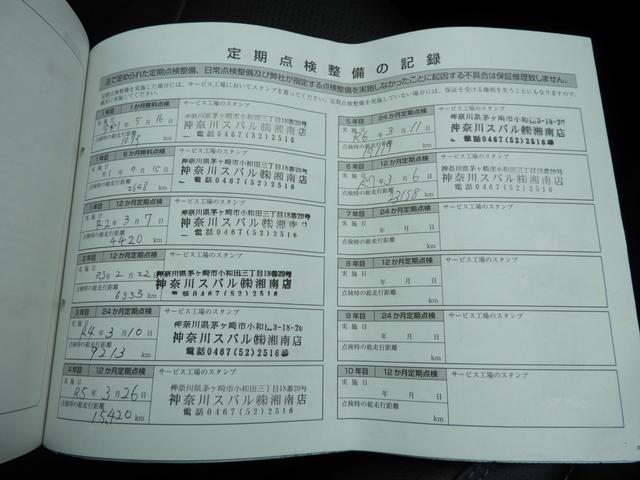 定期点検整備の記録
法で定められた定期点検整備、日常点検整備及び弊社が指定する点検整備を実施しなかったことに起因する不具合は保証修理致しません。
定期点検整備を実施した場合には、サービス工場においてスタンプを貰ってください。定期点検整備を実施していない場合には、保証を受ける権利を失うことにもなりますので、
確実に実施してください。
1か月無料点検 サービス工場のスタンプ
実施日
年 5月 16日
点検時の総走行距離
km
神奈川県茅ヶ崎市小和田三丁目18番20号
神奈川スバル㈱湘南店
電話 0467(52)2516
1年目 6か月無料点検 サービス工場のスタンプ
実施日
年 9月 15日
点検時の総走行距離
2648 km
神奈川県茅ヶ崎市小和田三丁目18番20号
神奈川スバル㈱湘南店
電話 0467(52)2516
1年目 12か月定期点検 サービス工場のスタンプ
実施日
R2年 3月 7日
点検時の総走行距離
4420 km
神奈川県茅ヶ崎市小和田三丁目18番20号
神奈川スバル㈱湘南店
電話 0467(52)2516
2年目 12か月定期点検 サービス工場のスタンプ
実施日
R3年 2月 22日
点検時の総走行距離
6933 km
神奈川県茅ヶ崎市小和田三丁目18番20号
神奈川スバル㈱湘南店
電話 0467(52)2516
3年目 24か月定期点検 サービス工場のスタンプ
実施日
R4年 3月 10日
点検時の総走行距離
9213 km
神奈川県茅ヶ崎市小和田3-18-20
神奈川スバル㈱湘南店
電話 0467(52)2516
4年目 12か月定期点検 サービス工場のスタンプ
実施日
R5年 3月 26日
点検時の総走行距離
15420 km
神奈川県茅ヶ崎市小和田三丁目18番20号
神奈川スバル㈱湘南店
電話 0467(52)2516
5年目 24か月定期点検 サービス工場のスタンプ
実施日
R6年 3月 11日
点検時の総走行距離
km
神奈川県茅ヶ崎市小和田3-18-20
神奈川スバル㈱湘南店
電話 0467(52)2516
6年目 24か月定期点検 サービス工場のスタンプ
実施日
R7年 3月 6日
点検時の総走行距離
23158 km
神奈川県茅ヶ崎市小和田三丁目18番20号
神奈川スバル㈱湘南店
電話 0467(52)2516
7年目 24か月定期点検 サービス工場のスタンプ
実施日
年 月 日
点検時の総走行距離
km
8年目 12か月定期点検 サービス工場のスタンプ
実施日
年 月 日
点検時の総走行距離
km
9年目 24か月定期点検 サービス工場のスタンプ
実施日
年 月 日
点検時の総走行距離
km
10年目 12か月定期点検 サービス工場のスタンプ
実施日
年 月 日
点検時の総走行距離
km